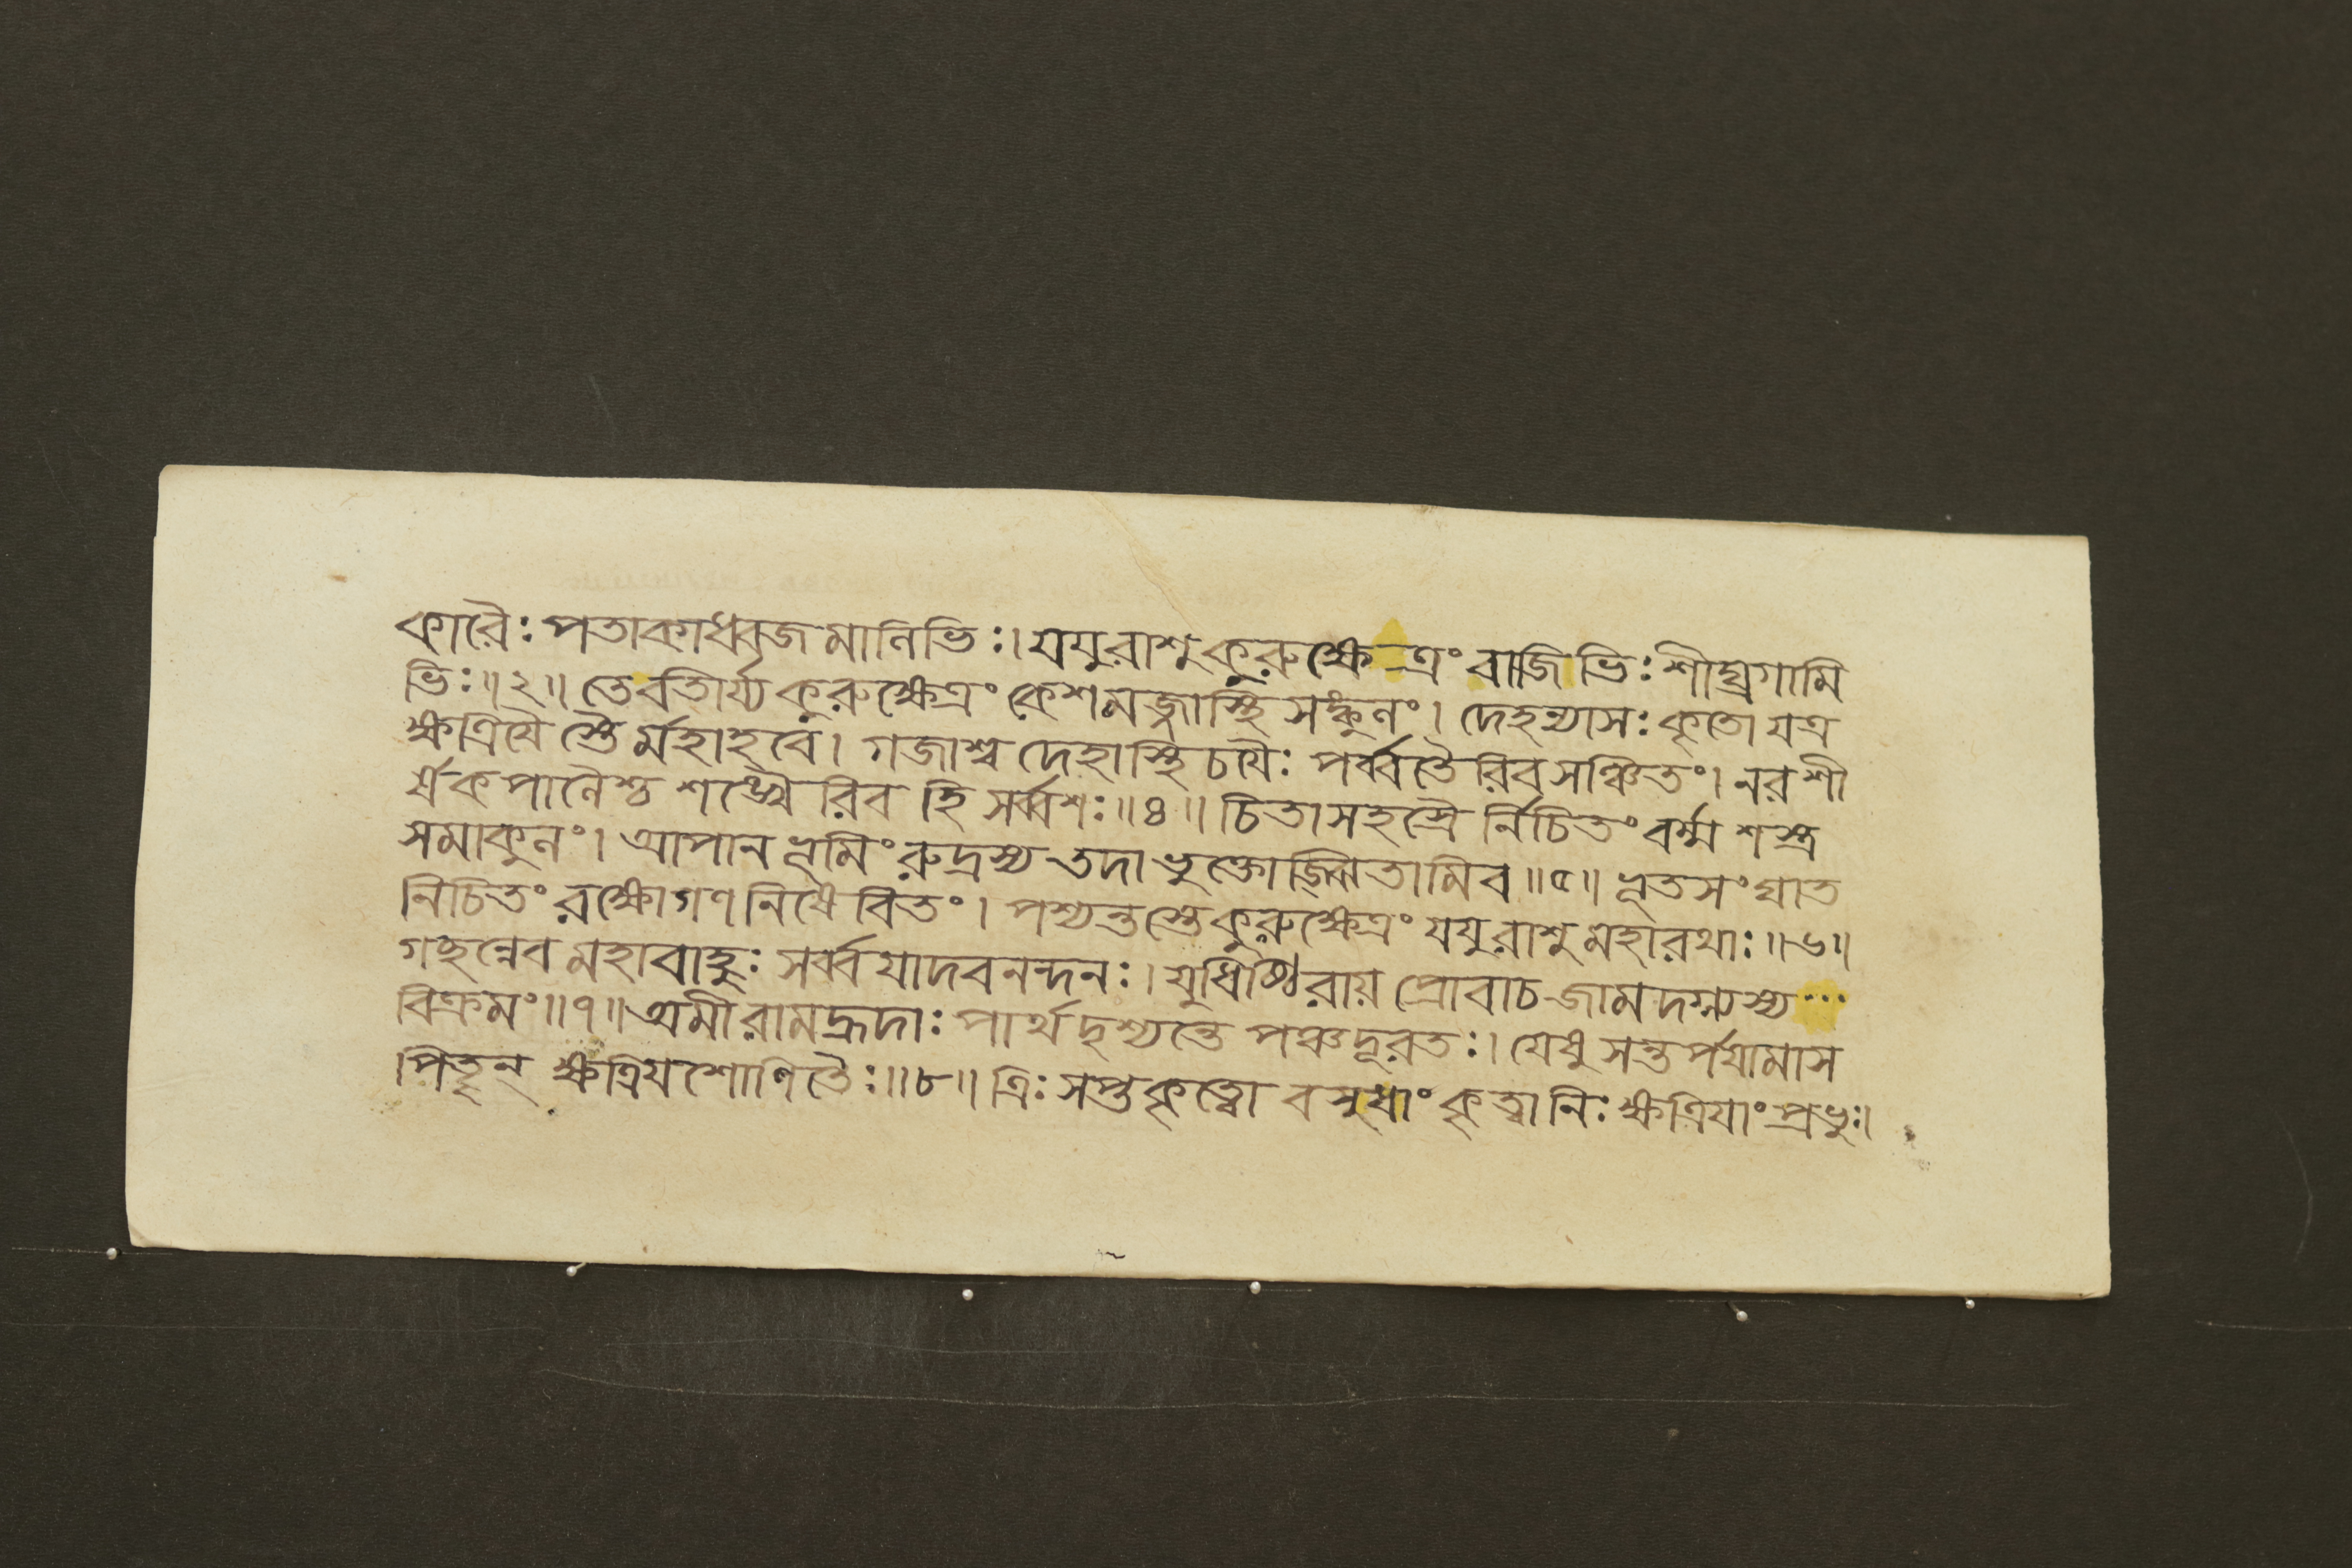 কারৈঃ পতাকাধ্বজমালিভিঃ। যযুরাশু কুরুক্ষেত্রং বাজিভিঃ শীঘ্রগামি
ভিঃ॥২॥ তেবতীর্য্য কুরুক্ষেত্রং কেশমজ্জাস্থি সঙ্কুলং। দেহন্যাসঃ কৃতো যত্র
ক্ষত্রিযৈ স্তৈর্মহাহবে। গজাশ্ব দেহাস্থি চযৈঃ পর্ব্বতৈরিব সঞ্চিতং। নরশী
র্ষ কপালৈশ্চ শঙ্খৈরিব হি সর্ব্বশঃ॥৪॥ চিতাসহস্রৈ র্নিচিতং বর্ম্ম শস্ত্র
সমাকুলং। আপান ভূমিং রুদ্রস্য তদা ভুক্তোজ্ঝিতামিব॥৫॥ ভূতসংঘাত
নিচিতং রক্ষোগণ নিষেবিতং। পশ্যন্তস্তে কুরুক্ষেত্রং যযুরাশু মহারথাঃ॥৬॥
গচ্ছন্নেব মহাবাহুঃ সর্ব্ব যাদবনন্দনঃ। যুধিষ্ঠিরায় প্রোবাচ জামদগ্ন্যস্য...
বিক্রমং॥৭॥ অমী রামহ্রদাঃ পার্থ দৃশ্যন্তে পঞ্চদূরতঃ। যেষু সন্তর্পযামাস
পিতৄন্ ক্ষত্রিযশোণিতৈঃ॥৮॥ ত্রিঃ সপ্তকৃত্বো বসুধাং কৃত্বা নিঃ ক্ষত্রিযাং প্রভুঃ।